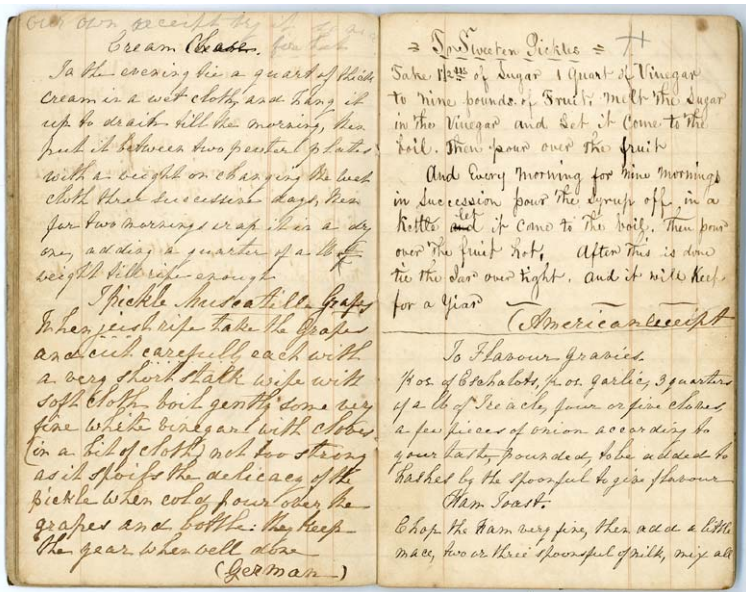 our own receipt try it
Cream Cheese.
In the evening tie a quart of thick
cream in a wet cloth, and hang it
up to drain till the morning, then
put it between two pewter plates
with a weight on changing the wet
cloth three successive days, then
for two mornings wrap it in a dry
one, adding a quarter of a lb
weight till ripe enough
Pickle Muscatille Grapes
When just ripe take the grapes
and cut carefully each with
a very short stalk wipe with
soft cloth boil gently some very
fine white vinegar with cloves
(in a bit of cloth) not too strong
as it spoils the delicacy of the
pickle when cold pour over the
grapes and bottle: they keep
the year when well done
(German)
= To Sweeten Pickles =
Take of Sugar 1 Quart of Vinegar
to nine pounds of Fruit. Melt the Sugar
in the Vinegar and Let it Come to the
boil. Then pour over the fruit
And Every Morning for nine mornings
in Succession pour the Syrup off, in a
Kettle let it come to the boil. Then pour
over the fruit hot. After this is done
tie the Jar over tight. and it will Keep
for a Year
(American receipt
To Flavour Gravies.
oz. of Eschalots, oz. garlic, 3 quarters
of a lb of Treacle, four or five cloves,
a few pieces of onion according to
your taste, pounded, to be added to
hashes by the spoonful to give flavour
Ham Toast.
Chop the Ham very fine, then add a little
mace, two or three spoonsful of milk, mix all